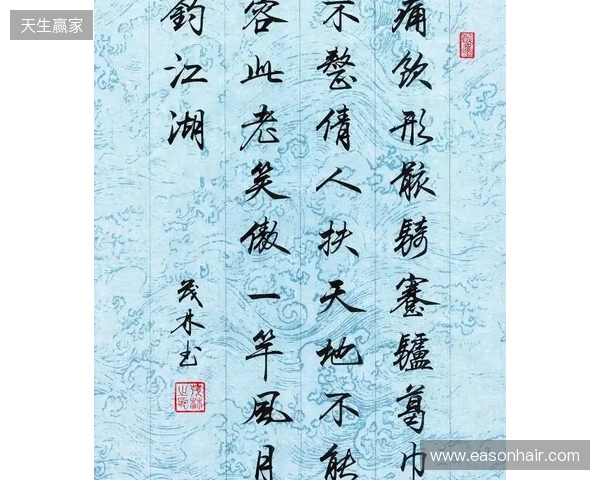 天生赢家
痛飲形骸騎蹇驢葛巾
不整倩人扶天地不能
容此老笑傲一竿風月
釣江湖
茂林书
www.easonhair.com